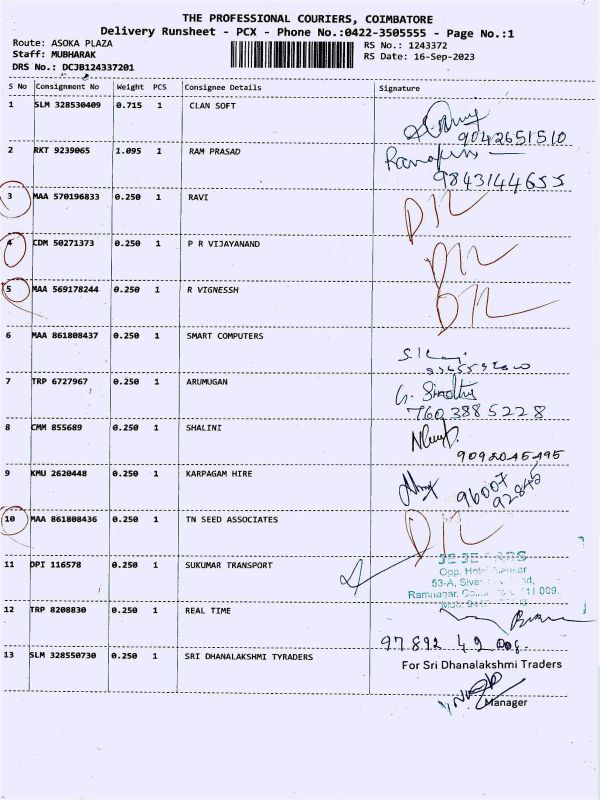 THE PROFESSIONAL COURIERS, COIMBATORE
Delivery Runsheet - PCX - Phone No.:0422-3505555 - Page No.:1
Route: ASOKA PLAZA RS No.: 1243372
Staff: MUBHARAK RS Date: 16-Sep-2023
DRS No.: DCJB124337201
S No Consignment No Weight PCS Consignee Details Signature
1 SLM 328530409 0.715 1 CLAN SOFT
9042651510
2 RKT 9239065 1.095 1 RAM PRASAD
9843144655
3 MAA 570196833 0.250 1 RAVI
4 CDM 50271373 0.250 1 P R VIJAYANAND
5 MAA 569178244 0.250 1 R VIGNESSH
6 MAA 861808437 0.250 1 SMART COMPUTERS
7 TRP 6727967 0.250 1 ARUMUGAN
7603885228
8 CMM 855689 0.250 1 SHALINI
9 KMU 2620448 0.250 1 KARPAGAM HIRE
96007
92845
10 MAA 861808436 0.250 1 TN SEED ASSOCIATES
11 DPI 116578 0.250 1 SUKUMAR TRANSPORT
Opp.
53-A,
Ramnagar,
12 TRP 8208830 0.250 1 REAL TIME
97892 49
13 SLM 328550730 0.250 1 SRI DHANALAKSHMI TYRADERS
For Sri Dhanalakshmi Traders
Manager